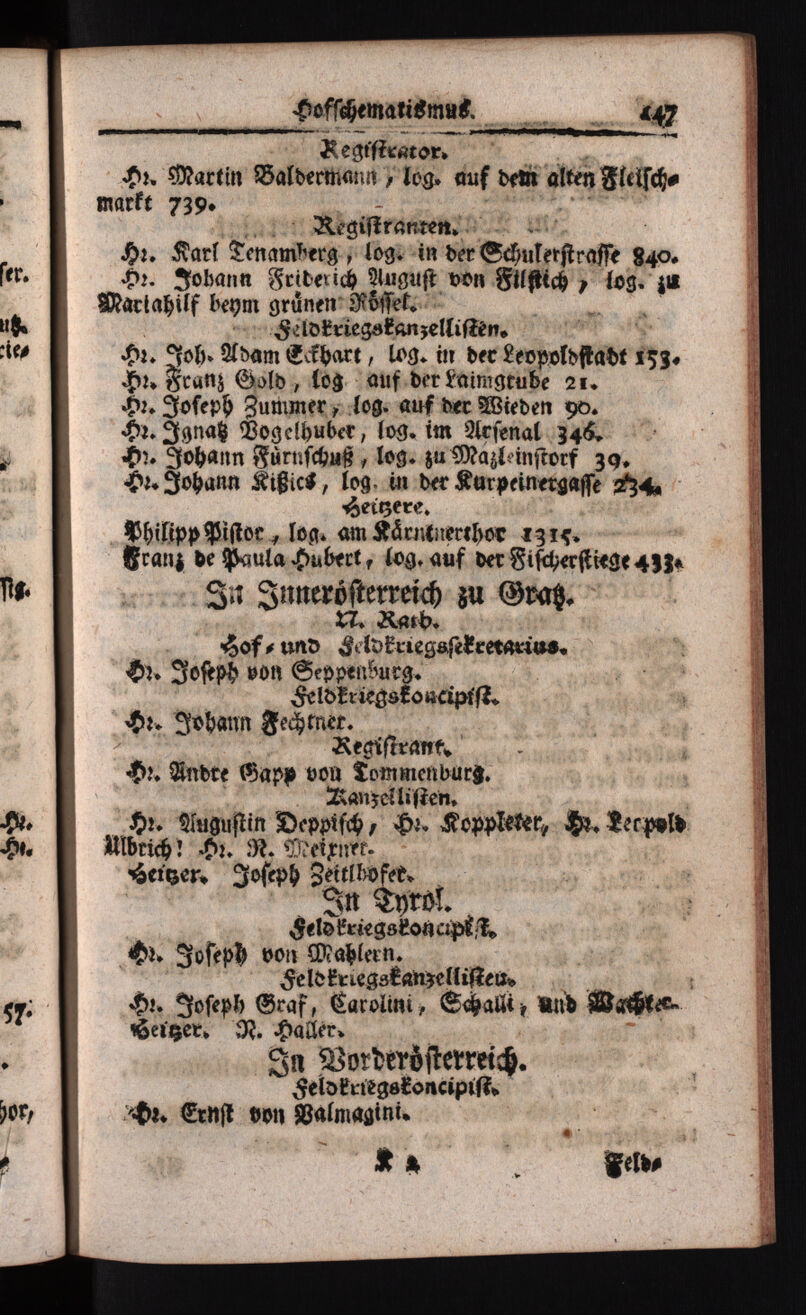 Hofschematismus. 147
Registrator.
Hr. Martin Baldermann, log. auf dem alten Fleisch-
markt 739.
Registranten.
Hr. Karl Tenamberg, log. in der Schulerstrasse 840.
Hr. Johann Friderich August von Filstich, log. zu
Mariahilf beym grünen Rössel.
Feldkriegskanzellisten.
Hr. Joh. Adam Eckhart, log. in der Leopoldstadt 153.
Hr. Franz Gold, log auf der Laimgrube 21.
Hr. Joseph Zummer, log. auf der Wieden 90.
Hr. Ignatz Vogelhuber, log. im Arsenal 346.
Hr. Johann Fürnschuß, log. zu Mazleinstorf 39.
Hr. Johann Kißics, log. in der Kurpeinergasse 234.
Heitzere.
Philipp Pistor, log. am Kärntnerthor 1315.
Franz de Paula Hubert, log. auf der Fischerstiege 433.
In Innerösterreich zu Gratz.
N. Rath.
Hof- und Feldkriegssekretarius.
Hr. Joseph von Seppenburg.
Feldkriegskoncipist.
Hr. Johann Fechtner.
Registrant.
Hr. Andre Gapp von Tommenburg.
Kanzellisten.
Hr. Augustin Deppisch, Hr. Koppleter, Hr. Leopold
Ulbrich! Hr. N. Meixner.
Heitzer. Joseph Zeitlhofer.
In Tyrol.
Feldkriegskoncipist.
Hr. Joseph von Mahlern.
Feldkriegskanzellisten.
Hr. Joseph Graf, Carolini, Schalli, und Wachter.
Heitzer. N. Haller.
In Vorderösterreich.
Feldkriegskoncipist.
Hr. Ernst von Valmagini.
K 2 Feld-